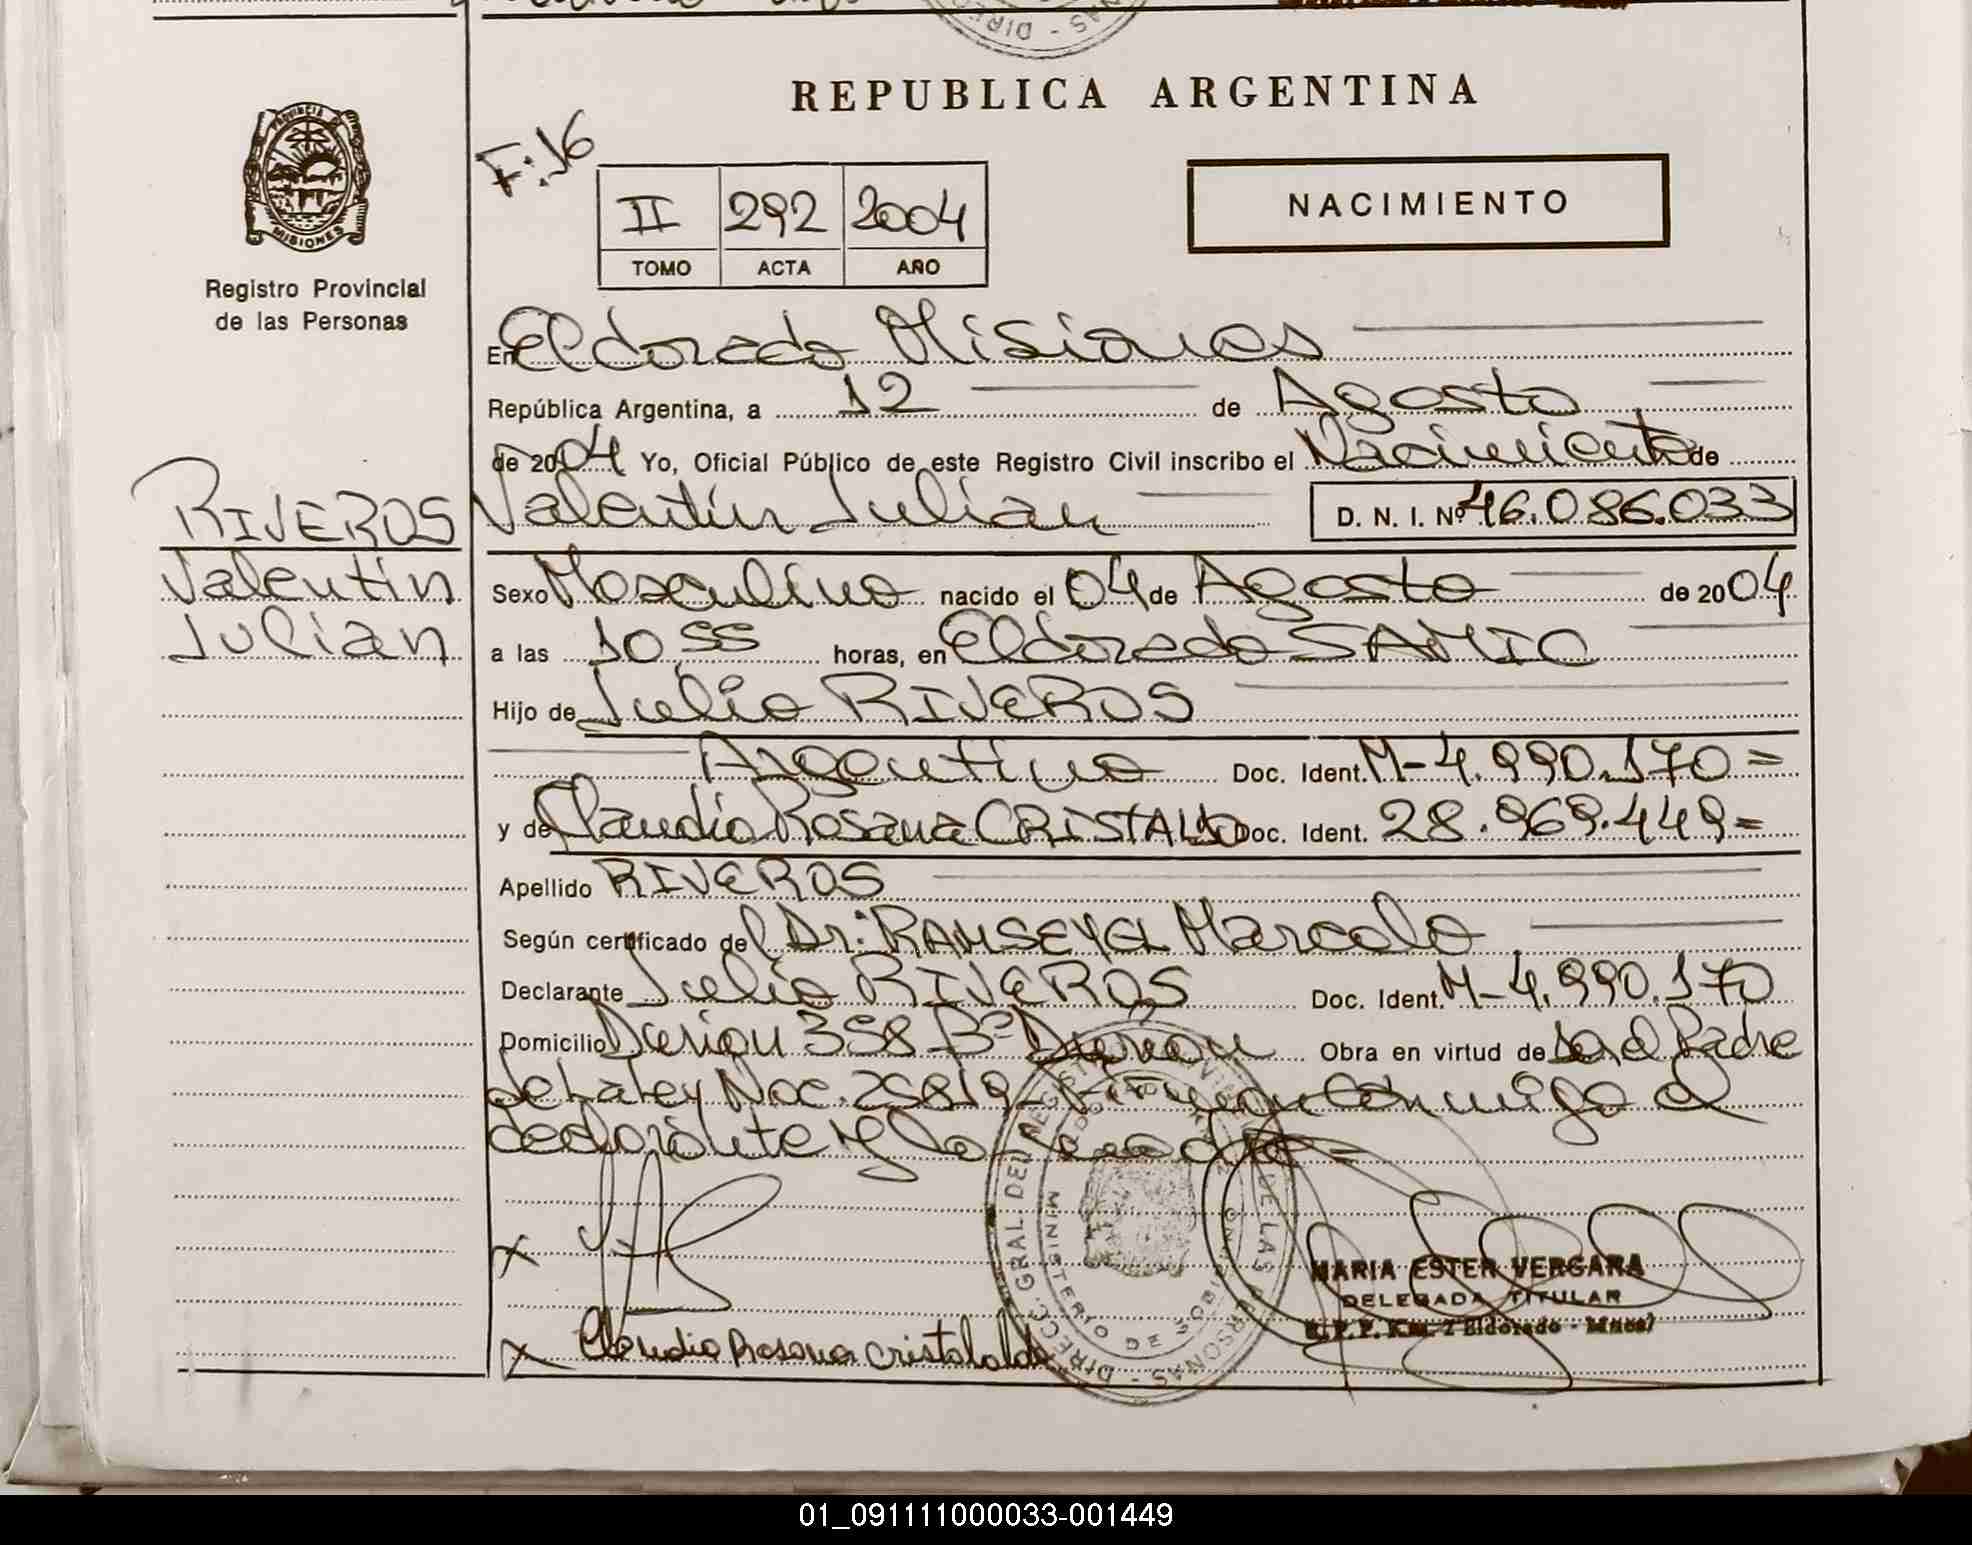 REPUBLICA ARGENTINA
F:16
II 292 2004
TOMO ACTA AÑO
NACIMIENTO
PROVINCIA DE
MISIONES
Registro Provincial
de las Personas
En Eldorado Misiones
República Argentina, a 12 de Agosto
de 2004 Yo, Oficial Público de este Registro Civil inscribo el Nacimiento de
Valentín Julian D. N. I. Nº 46.086.033
RIVEROS
Valentín
Julian
Sexo Masculino nacido el 04 de Agosto de 2004
a las 10,55 horas, en Eldorado SAMIC
Hijo de Julio RIVEROS
Argentino Doc. Ident. M-4.990.170=
y de Claudia Rosana CRISTALDO Doc. Ident. 28.969.449=
Apellido RIVEROS
Según certificado del Dr: RAMSEYGL Marcelo
Declarante Julio RIVEROS Doc. Ident. M-4.990.170
Domicilio 358 Bº Obra en virtud de ser el Padre
de la ley Nac. 25819 - Firman conmigo el
declarante y la madre =
Claudia Rosana Cristaldo
MARIA ESTER VERGARA
DELEGADA TITULAR
R.P.P. Km. 2 Eldorado - Mnes)
DIRECC. GRAL DEL REGISTRO PROVINCIAL DE LAS PERSONAS
MINISTERIO DE GOBIERNO
01_091111000033-001449